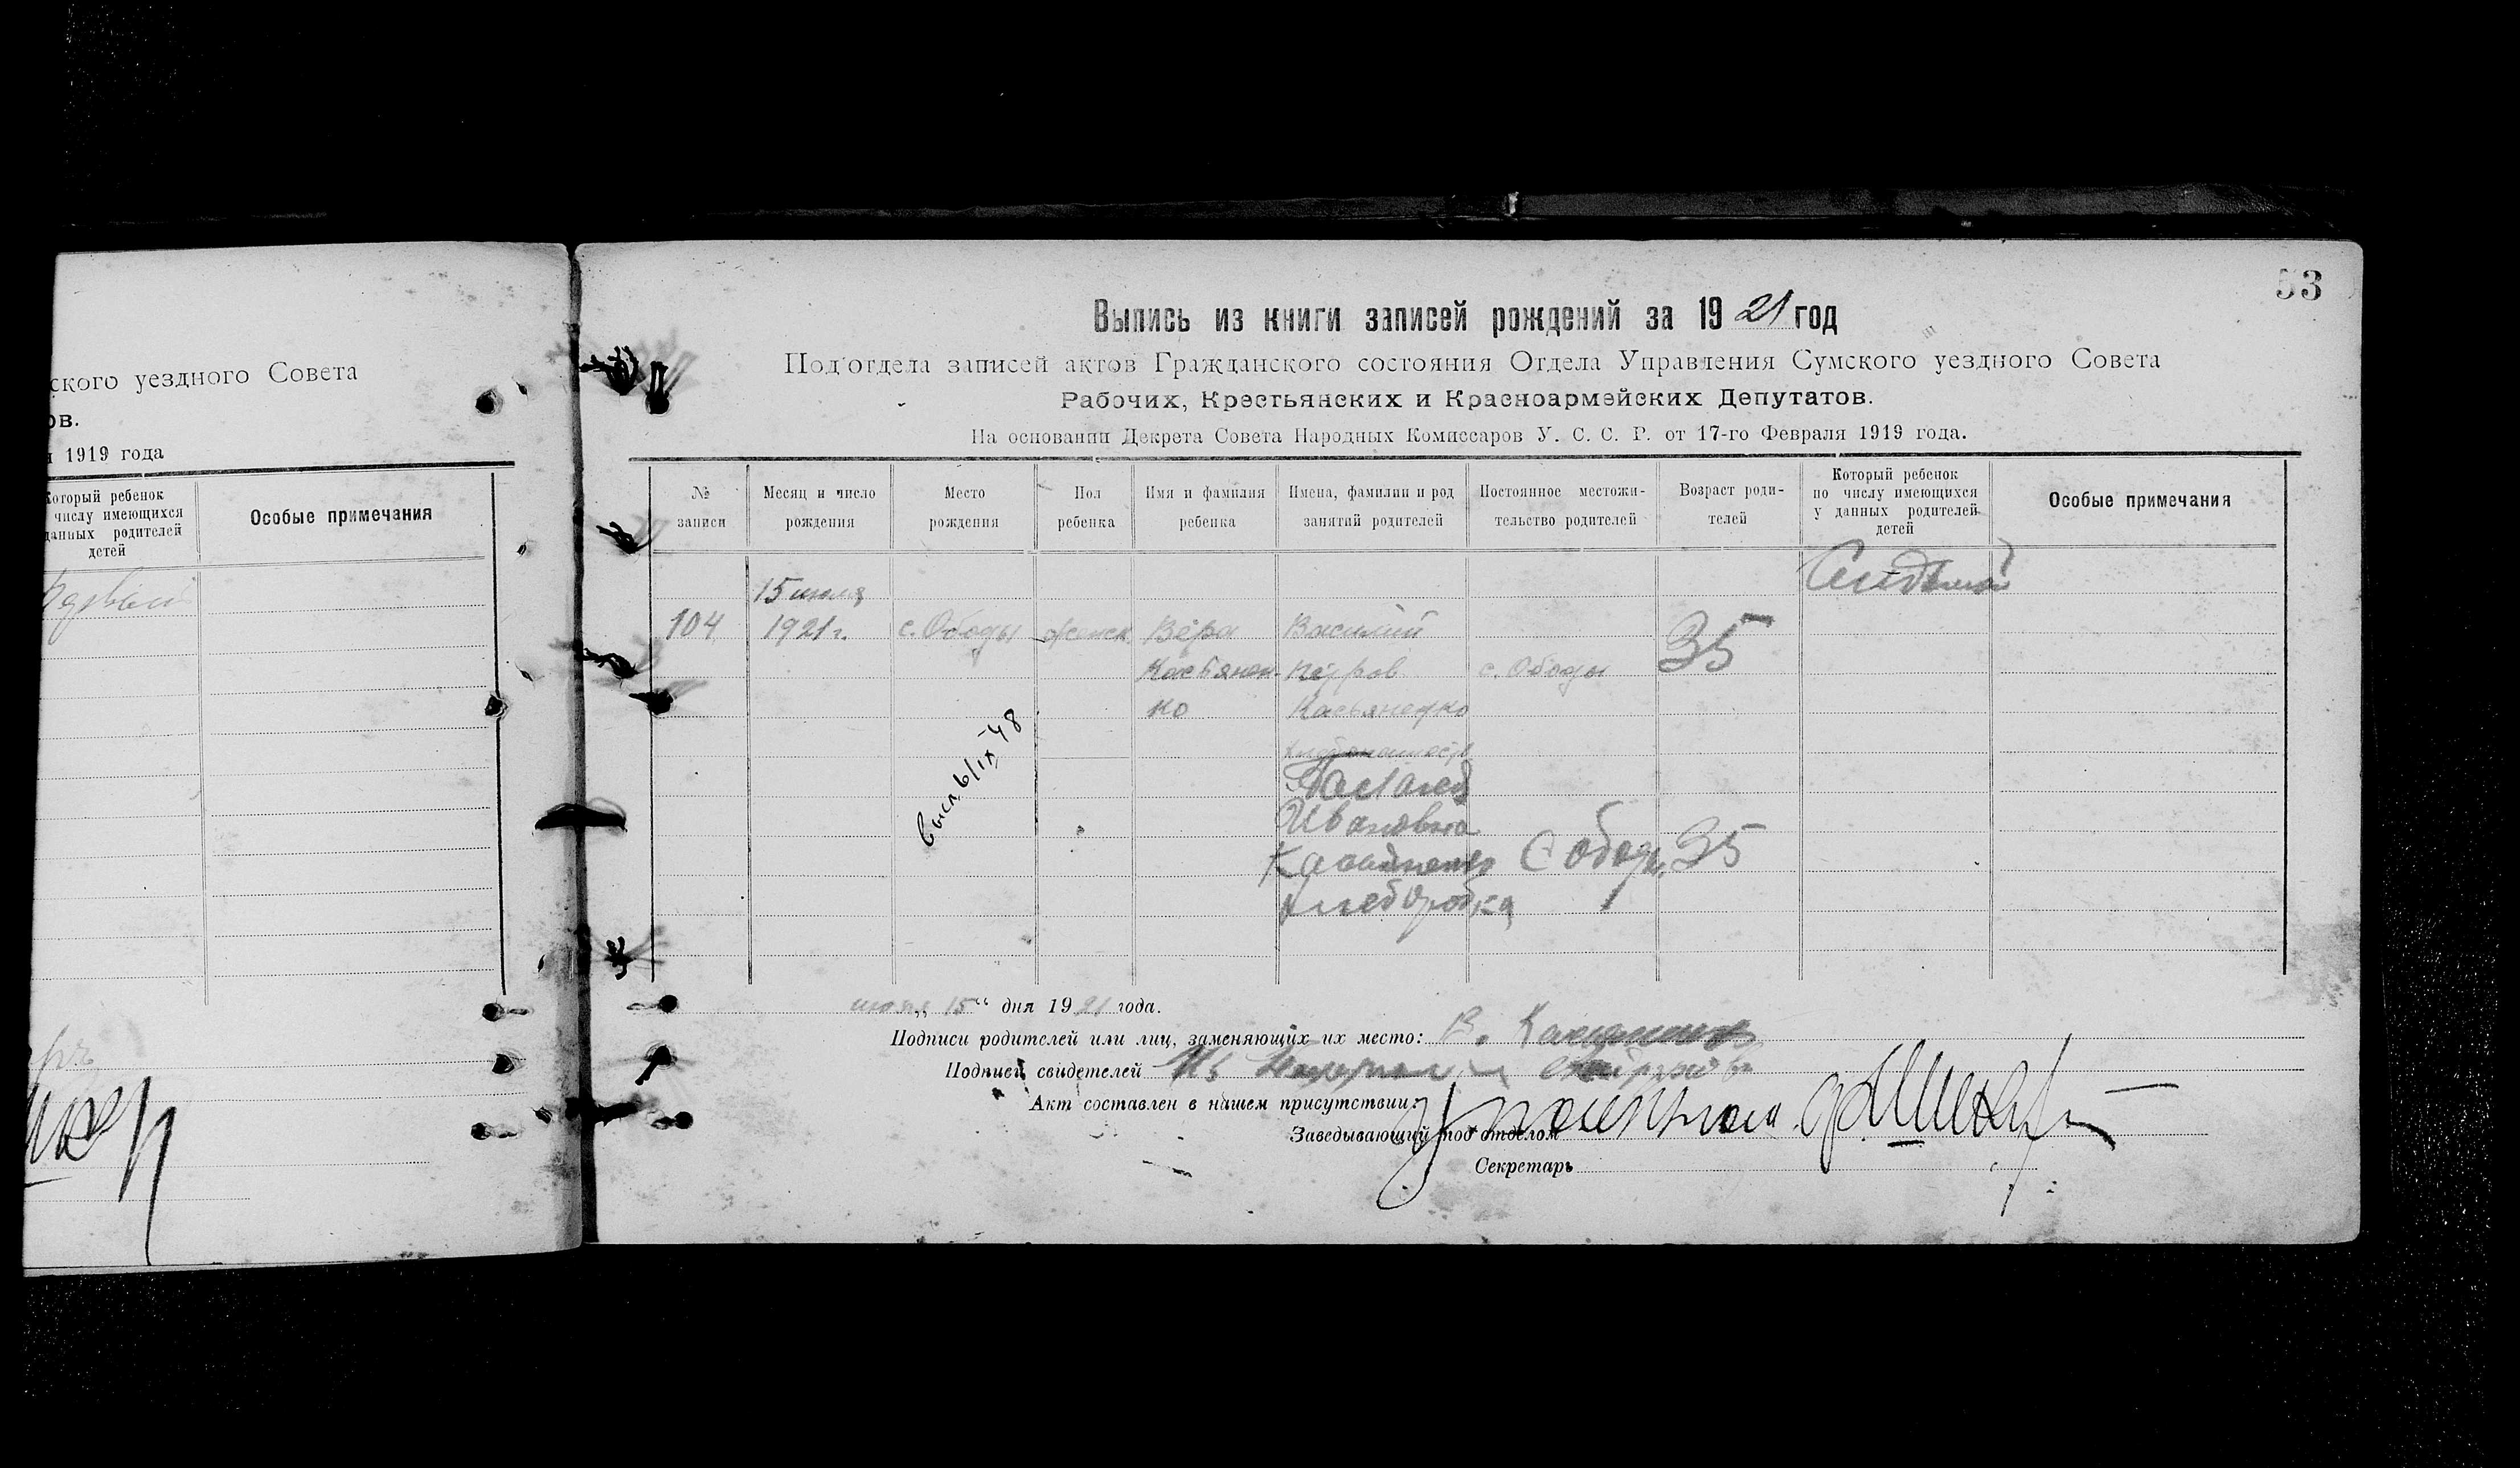 ского уездного Совета
ов.
я 1919 года
Который ребенок
числу имеющихся
данных родителей
детей
Особые примечания
53
Выпись из книги записей рождений за 1921 год
Под'отдела записей актов Гражданского состояния Отдела Управления Сумского уездного Совета
Рабочих, Крестьянских и Красноармейских Депутатов.
На основании Декрета Совета Народных Комиссаров У. С. С. Р. от 17-го Февраля 1919 года.
№ записи
Месяц и число рождения
Место рождения
Пол ребенка
Имя и фамилия ребенка
Имена, фамилии и род занятий родителей
Постоянное местожительство родителей
Возраст родителей
Который ребенок по числу имеющихся у данных родителей детей
Особые примечания
15
104 1921 г. с. Ободы женск. Вера Василий 35
Касьянен- с. Ободы
ко Касьяненко
Ивановна
с Ободы 35
хлебородка
15" дня 1921 года.
Подписи родителей или лиц, заменяющих их место: В.
Подписи свидетелей
Акт составлен в нашем присутствии:
Заведывающий под'отделом
Секретарь